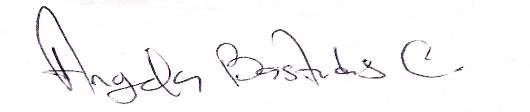 Angela Bastidas C.